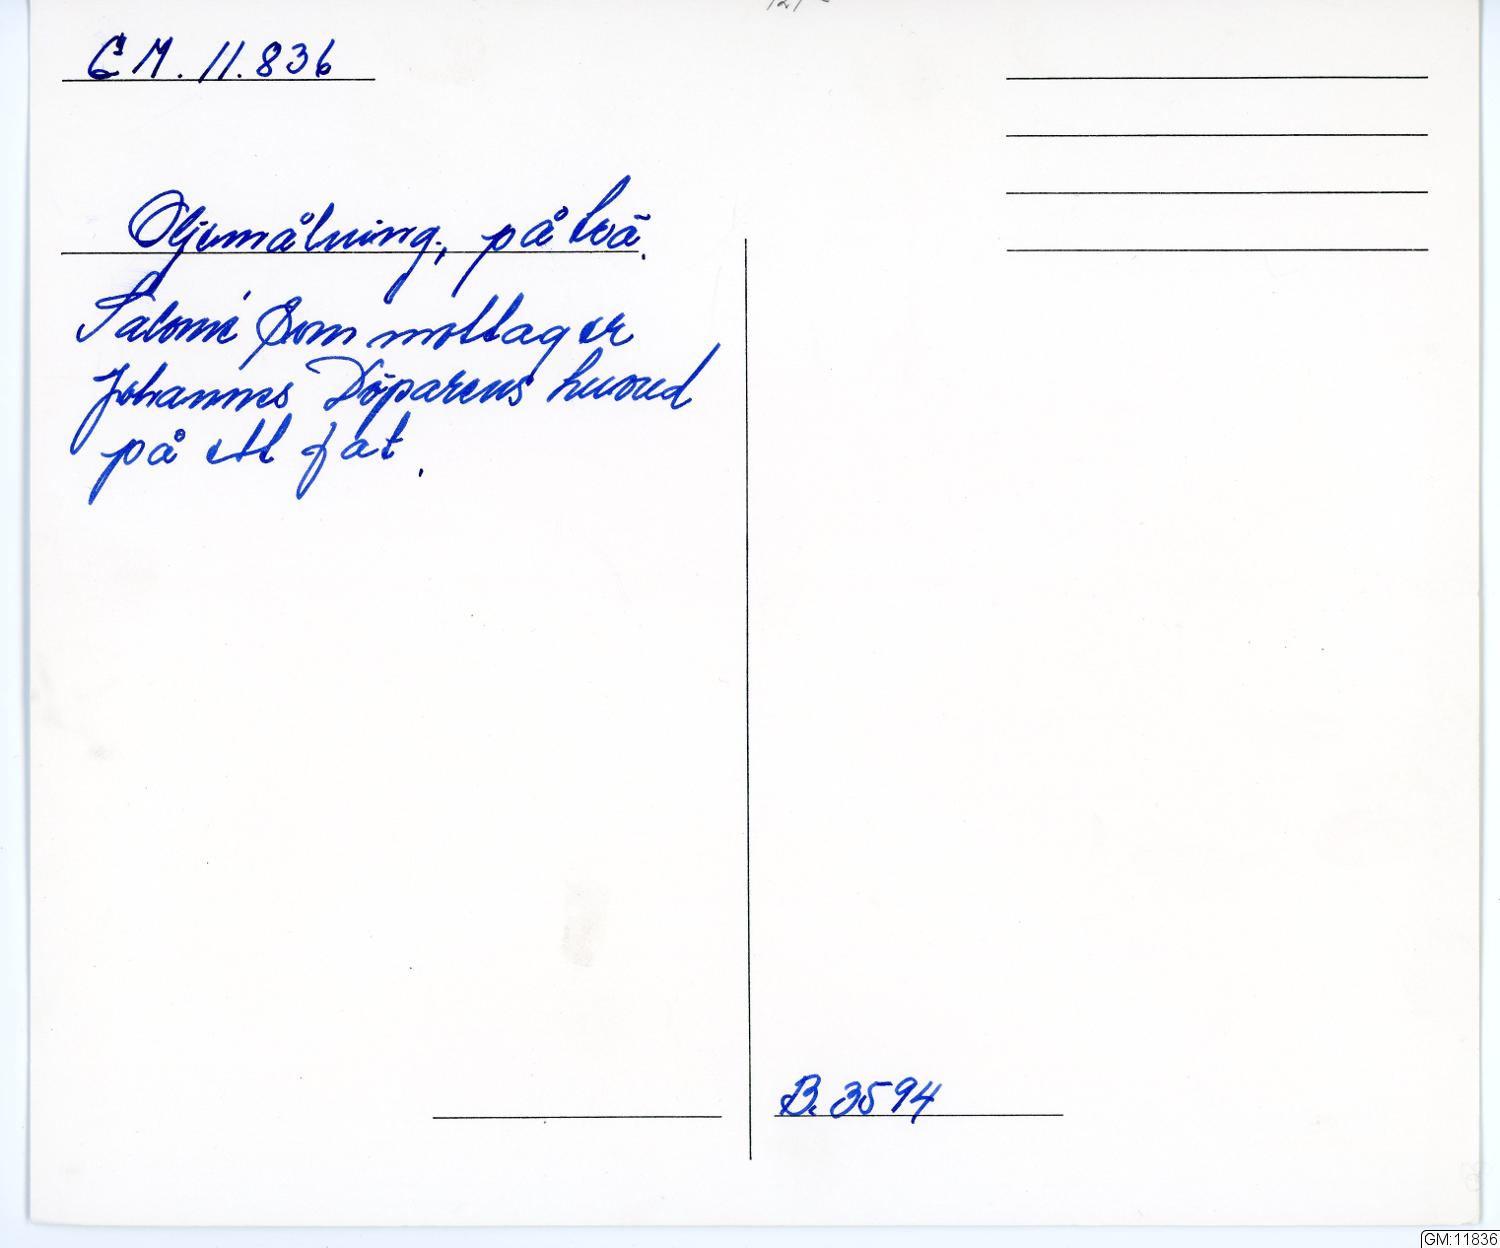 GM. 11.836
Oljemålning, på trä.
Salomé som mottager
Johannes Döparens huvud
på ett fat.
B. 3594
GM:11836